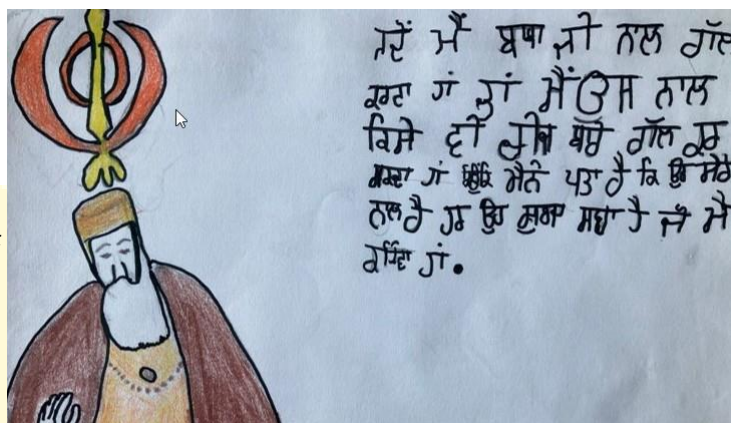 ਜਦੋਂ ਮੈਂ ਬਾਬਾ ਜੀ ਨਾਲ ਗੱਲ
ਕਰਦਾ ਹਾਂ ਤਾਂ ਮੈਂ ਉਸ ਨਾਲ
ਕਿਸੇ ਵੀ ਚੀਜ਼ ਬਾਰੇ ਗੱਲ ਕਰ
ਸਕਦਾ ਹਾਂ ਕਿਉਂਕਿ ਮੈਨੂੰ ਪਤਾ ਹੈ ਕਿ ਉਹ ਮੇਰੇ
ਨਾਲ ਹੈ ਹਰ ਉਹ ਸੁਣਦਾ ਹੈ ਜੋ ਮੈਂ
ਕਹਿੰਦਾ ਹਾਂ।